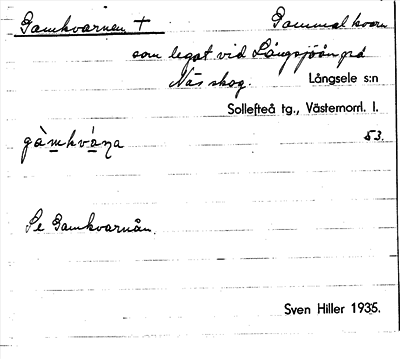 Gamkvarnen † Gammal kvarn
som legat vid Långsjöån på
Näs skog. Långsele s:n
Sollefteå tg., Västernorrl. l.
gàmkváṇa 53.
Se Gamkvarnån.
Sven Hiller 1935.